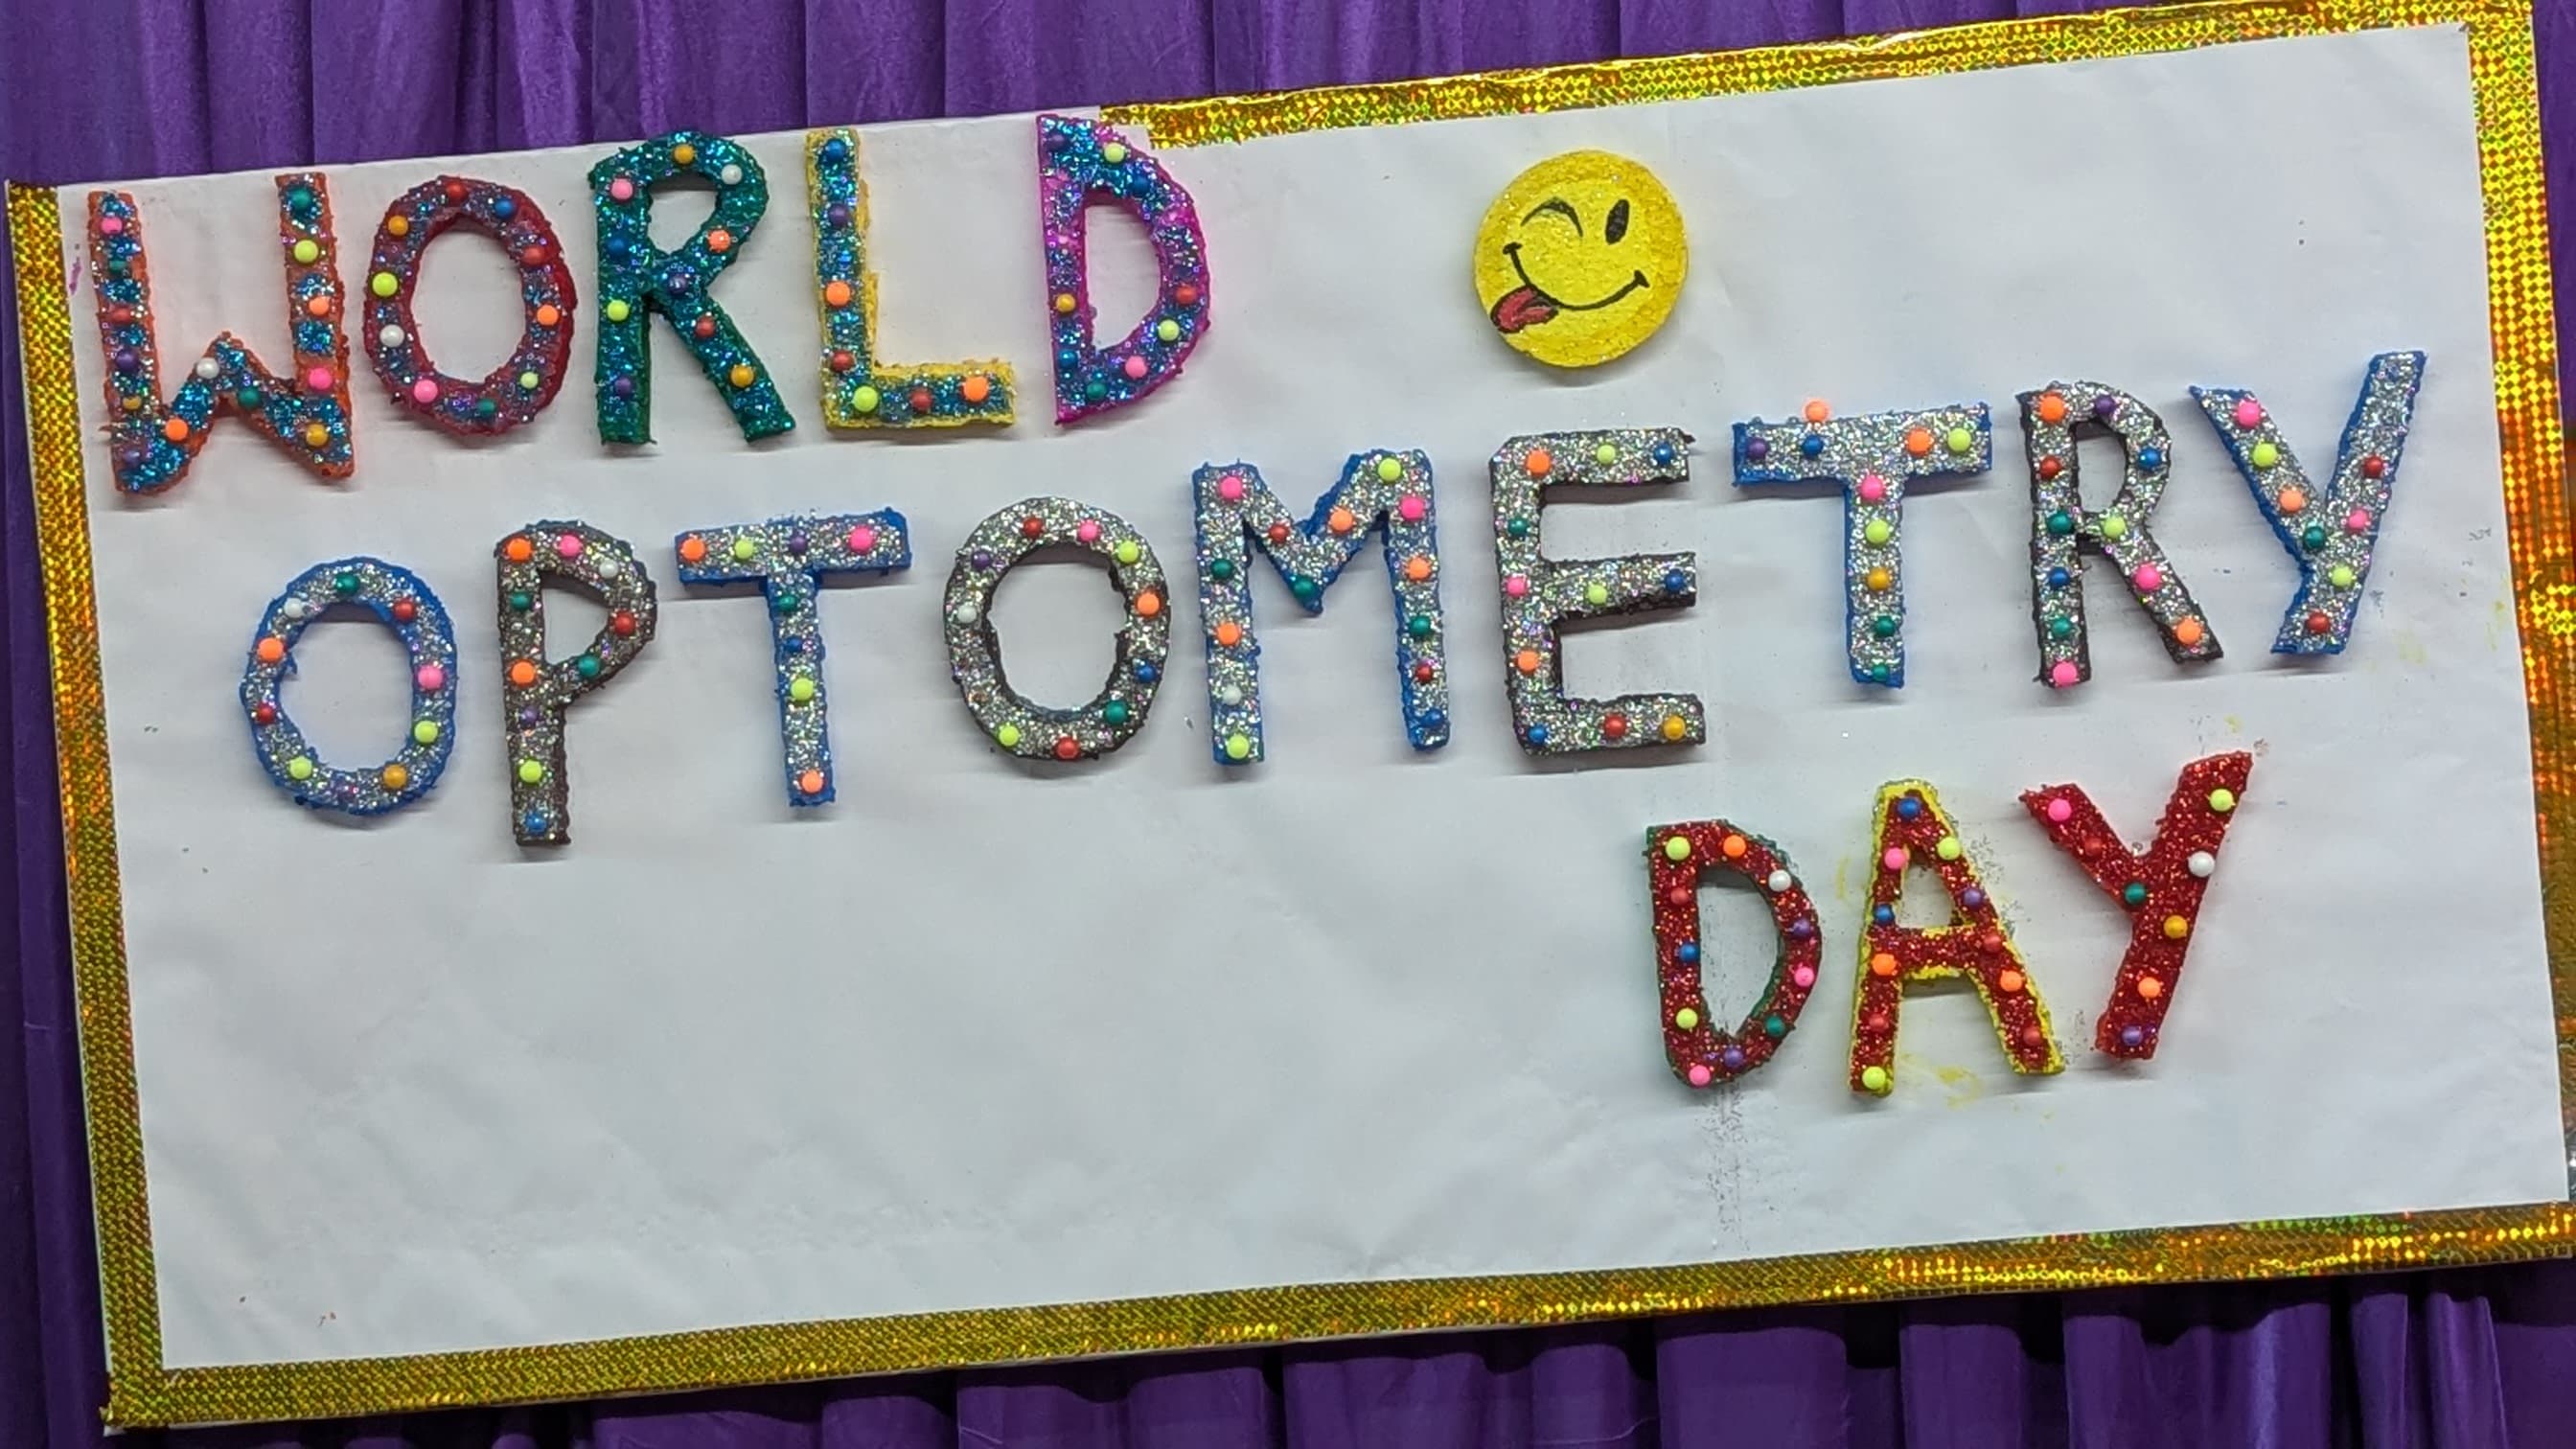 WORLD
OPTOMETRY
DAY